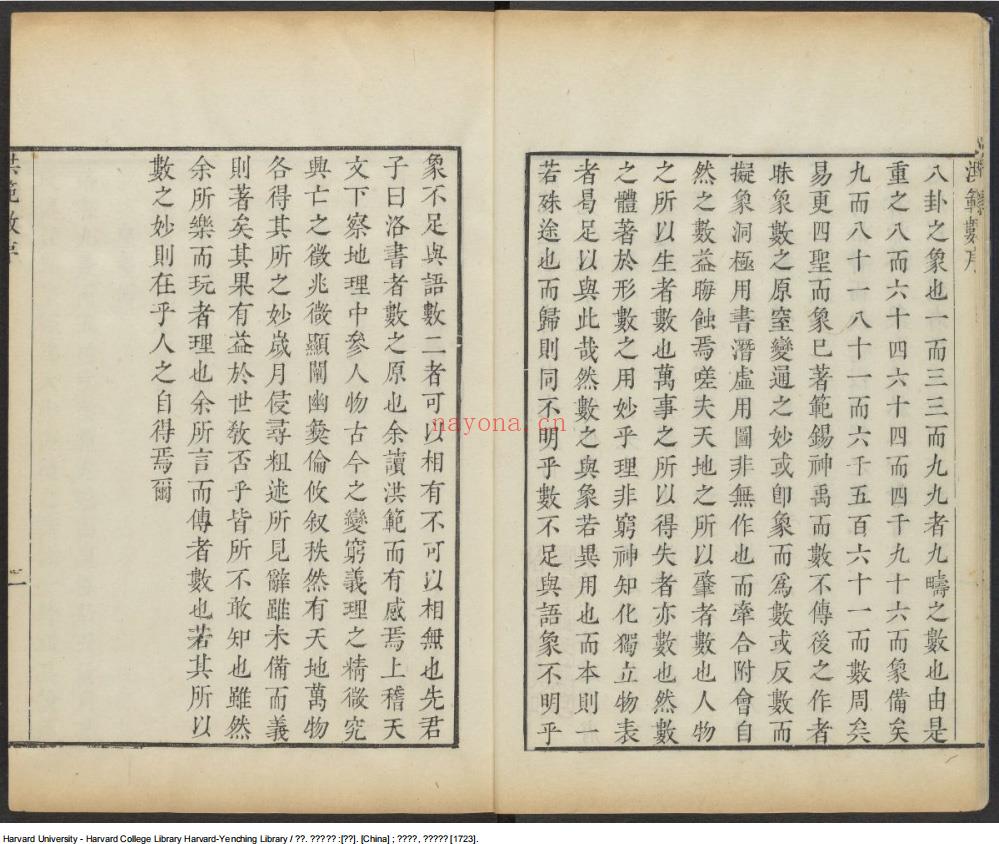 洪範數序
八卦之象也一而三三而九九者九疇之數也由是
重之八而六十四六十四而四千九十六而象備矣
九而八十一八十一而六千五百六十一而數周矣
易更四聖而象已著範錫神禹而數不傳後之作者
昧象數之原窒變通之妙或卽象而爲數或反數而
擬象洞極用書潛虛用圖非無作也而牽合附會自
然之數益晦蝕焉嗟夫天地之所以肇者數也人物
之所以生者數也萬事之所以得失者亦數也然數
之體著於形數之用妙乎理非窮神知化獨立物表
者曷足以與此哉然數之與象若異用也而本則一
若殊途也而歸則同不明乎數不足與語象不明乎
象不足與語數二者可以相有不可以相無也先君
子曰洛書者數之原也余讀洪範而有感焉上稽天
文下察地理中參人物古今之變窮義理之精微究
興亡之徵兆微顯闡幽彝倫攸叙秩然有天地萬物
各得其所之妙歲月侵尋粗述所見辭雖未備而義
則著矣其果有益於世敎否乎皆所不敢知也雖然
余所樂而玩者理也余所言而傳者數也若其所以
數之妙則在乎人之自得焉爾
洪範數序
二
nayona.cn
Harvard University - Harvard College Library Harvard-Yenching Library / ??. ????? :[??]. [China] ; ????, ????? [1723].